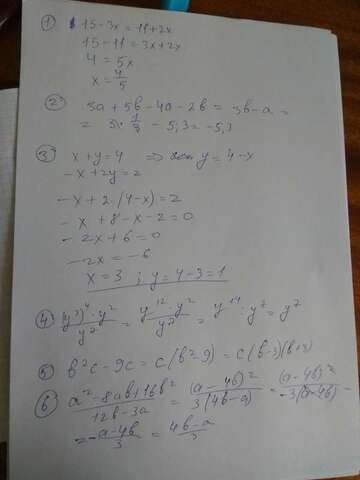 ① 15-3x=11+2x
15-11=3x+2x
4=5x
x=4/5
② 3a+5b-4a-2b=3b-a=
=3·1/3-5,3=-5,3
③ x+y=4 ⇒ y=4-x
-x+2y=2
-x+2·(4-x)=2
-x+8-x-2=0
-2x+6=0
-2x=-6
x=3; y=4-3=1
④ (y³)⁴·y²/y⁷=y¹²·y²/y⁷=y¹⁴:y⁷=y⁷
⑤ b²c-9c=c(b²-9)=c(b-3)(b+3)
⑥ a²-8ab+16b²/12b-3a=(a-4b)²/3(4b-a)=(a-4b)²/-3(a-4b)=
=-a-4b/3=4b-a/3